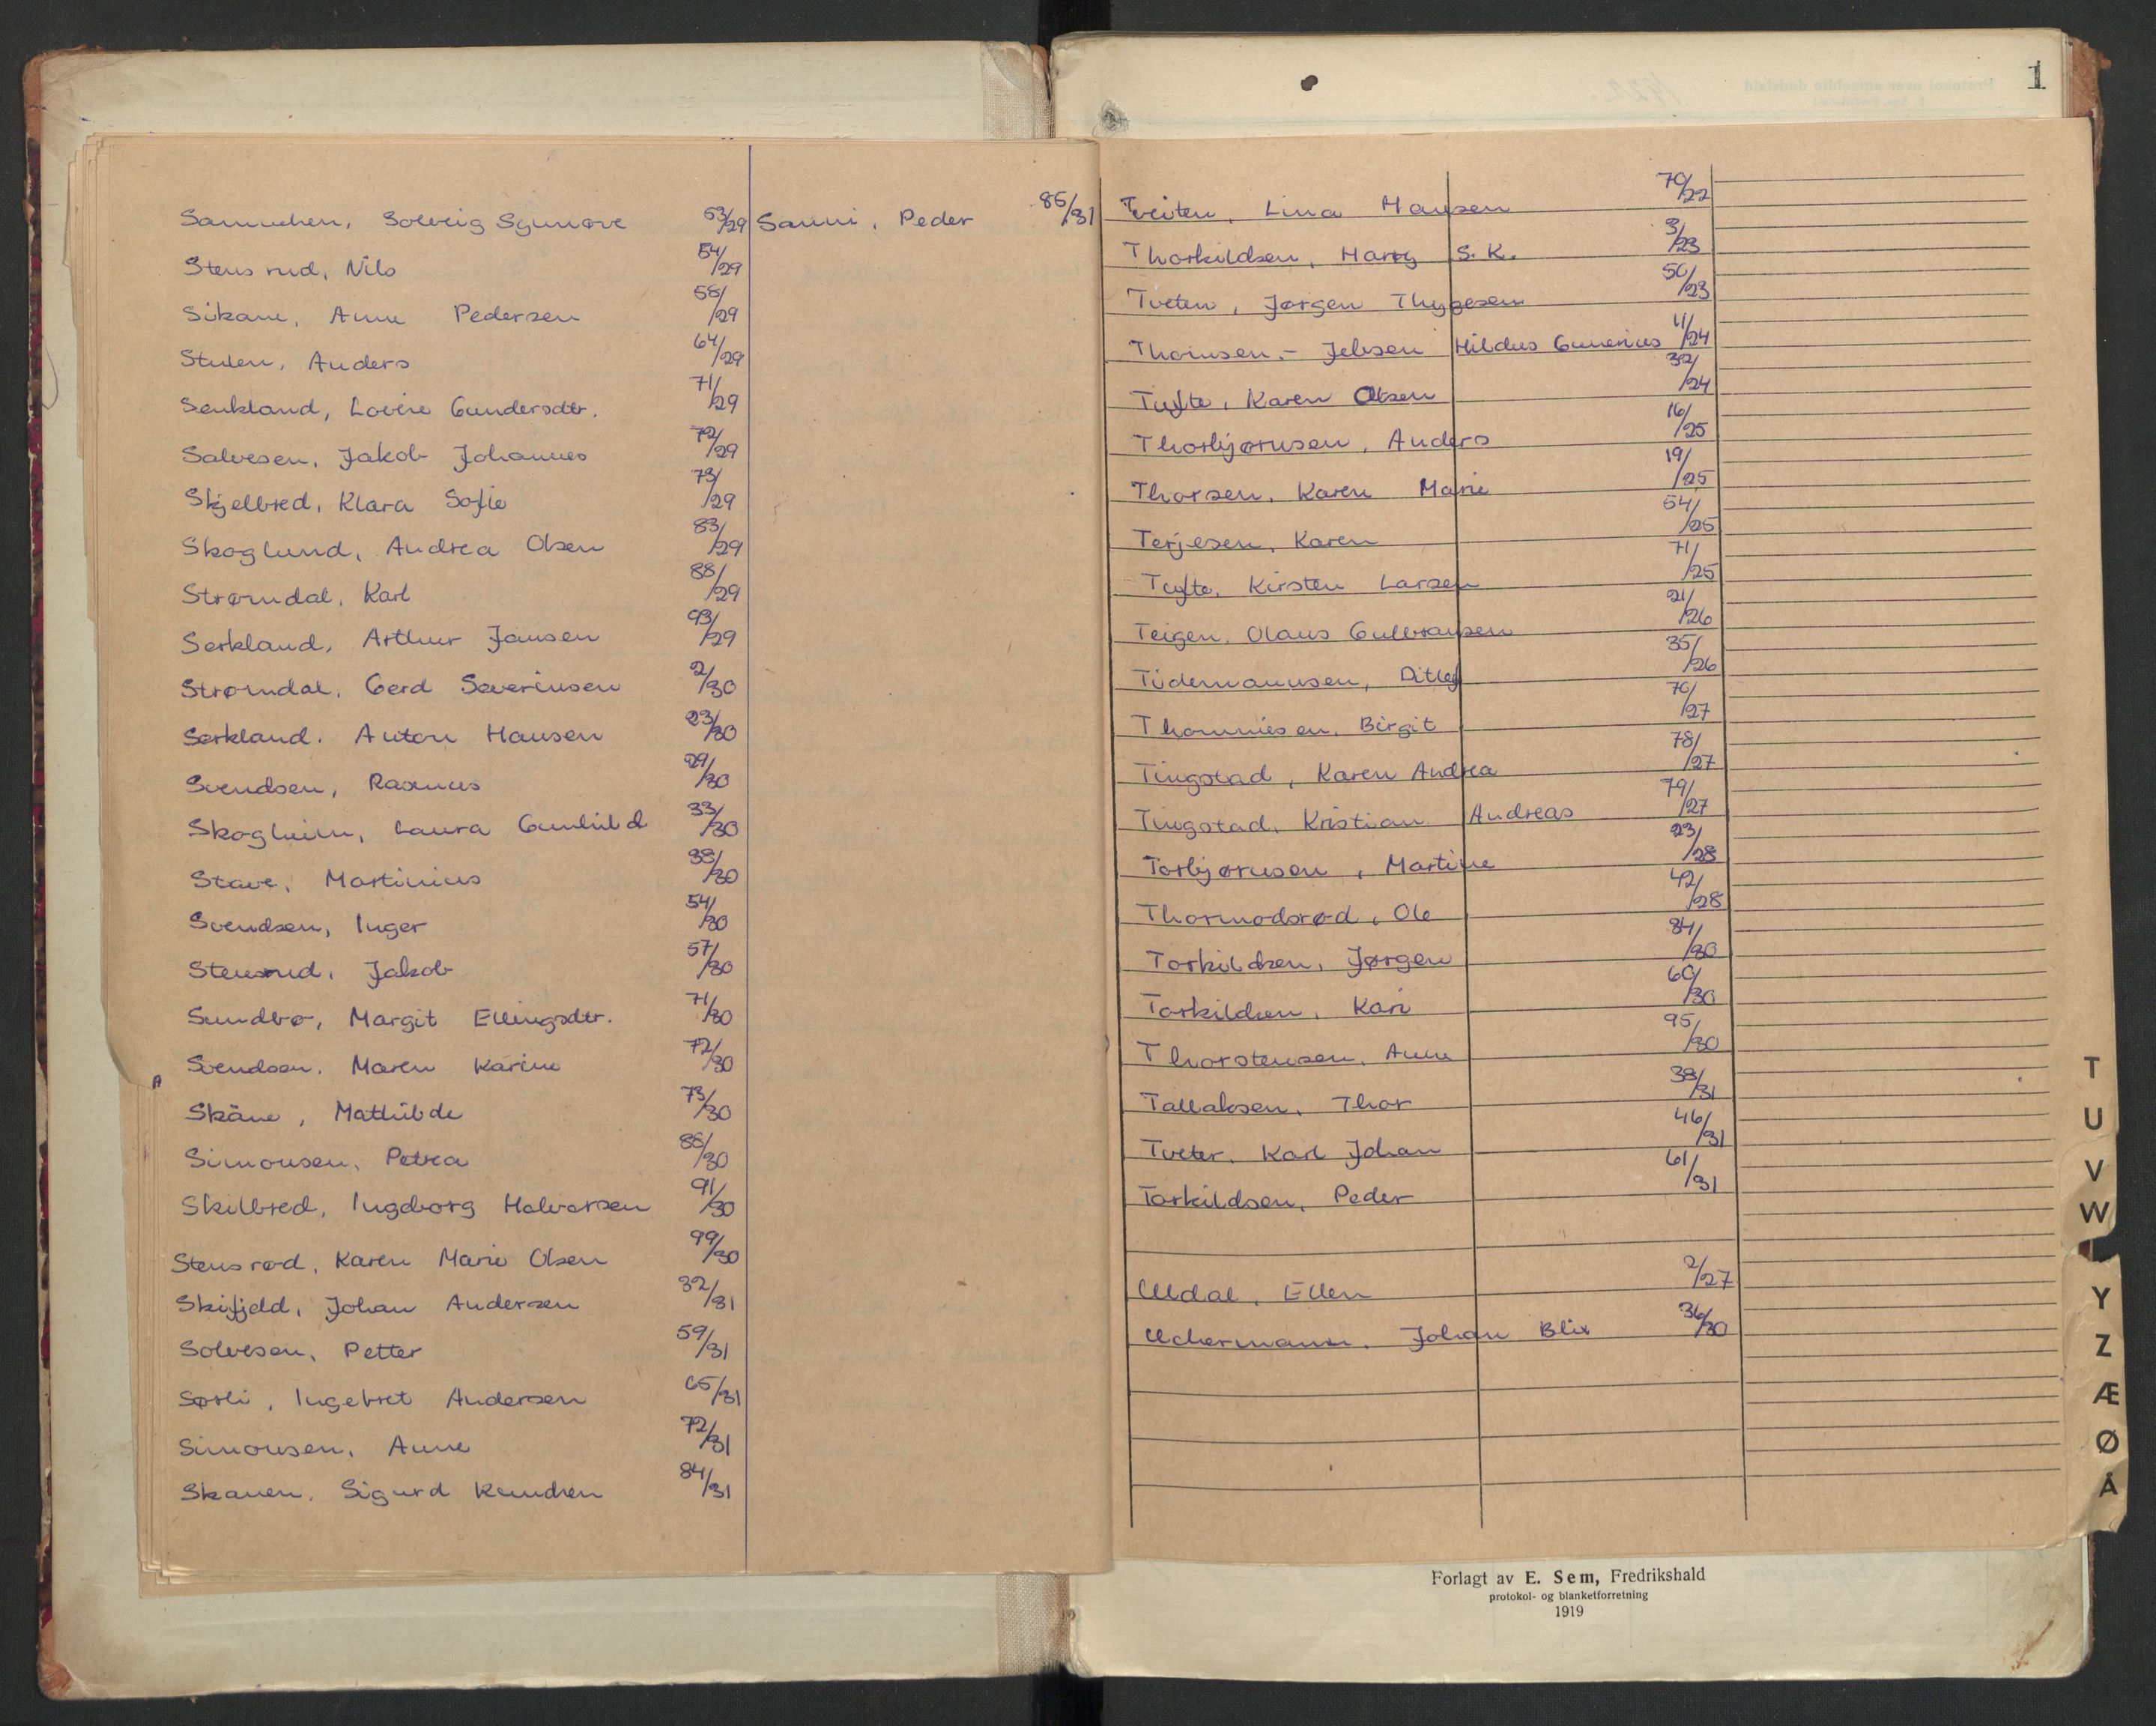 Samuelsen, Solveig Synnøve 53/29
Stensrud, Nils 54/29
Sikane, Anne Pedersen 58/29
Stulen, Anders 64/29
Senkland, Lovise Gundersdtr. 71/29
Salvesen, Jakob Johannes 72/29
Skjelbred, Klara Sofie 73/29
Skoglund, Andrea Olsen 83/29
Strømdal, Karl 88/29
Serkland, Arthur Jansen 93/29
Strømdal, Gerd Severinsen 2/30
Serkland. Anton Hansen 23/30
Svendsen, Rasmus 29/30
Skogheim, Laura Gunhild 33/30
Stave, Martinius 38/30
Svendsen, Inger 54/30
Stensrud, Jakob 57/30
Sundbø, Margit Ellingsdtr. 71/30
Svendsen, Maren Karine 72/30
Skåne, Mathilde 73/30
Simonsen, Petra 88/30
Skilbred, Ingeborg Halvorsen 91/30
Stensrød, Karen Marie Olsen 99/30
Skifjeld, Johan Andersen 32/31
Solvesen, Petter 59/31
Sørli, Ingebret Andersen 65/31
Simonsen, Anne 72/31
Skanen, Sigurd Knudsen 84/31
Sanni, Peder 85/31
1
Tveiten, Lina Hansen 70/22
Thorkildsen, Harry S. K. 3/23
Tveten, Jørgen Thygesen 50/23
Thomsen.- Jebsen Hildus Gunerius 11/24
Tufte, Karen Olsen 32/24
Thorbjørnsen, Anders 16/25
Thorsen, Karen Marie 19/25
Terjesen, Karen 54/25
Tufte, Kirsten Larsen 71/25
Teigen, Olaus Gulbransen 21/26
Tidemannsen, Ditlef 35/26
Thommesen, Birgit 70/27
Tingstad, Karen Andrea 78/27
Tingstad, Kristian Andreas 79/27
Torbjørnsen, Martine 23/28
Thormodsrød, Ole 42/28
Torkildsen, Jørgen 34/30
Torkildsen, Kari 60/30
Thorstensen, Anne 95/30
Tallaksen, Thor 38/31
Tveter, Karl Johan 46/31
Torkildsen, Peder 61/31
Uldal, Ellen 2/27
Uchermann, Johan Blix 36/30
T
U
V
W
Y
Z
Æ
Ø
Å
Forlagt av E. Sem, Fredrikshald
protokol- og blanketforretning
1919